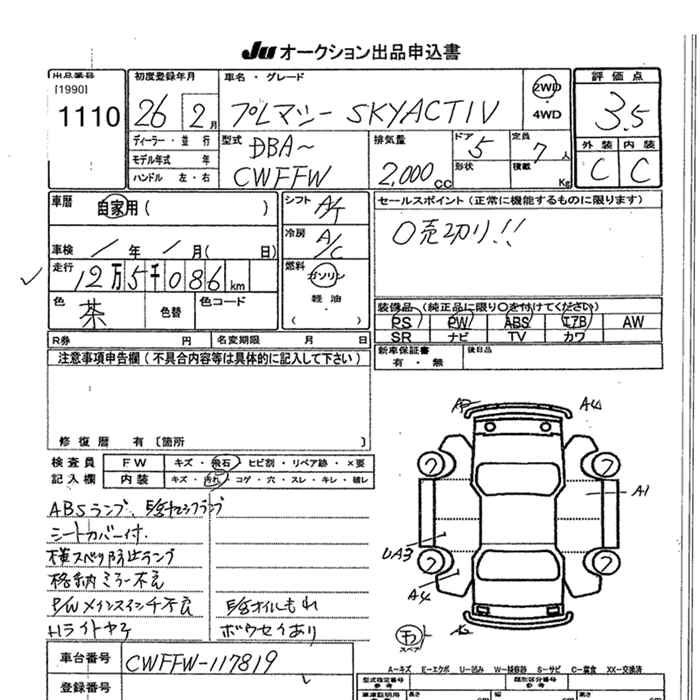 Ju オークション出品申込書
出品番号
[1990]
1110
初度登録年月
26 2月
ディーラー・並行
モデル年式 年
ハンドル 左・右
車名・グレード
プレマシー SKYACTIV
2WD
4WD
評価点
3.5
外装 内装
C C
型式
DBA〜
CWFFW
排気量
2,000cc
ドア 5
形状
定員 7人
積載 Kg
車歴
自家用( )
車検 / 年 / 月( 日)
走行 12万5千086km
色 茶
色替
色コード
シフト A/T
冷房 A/C
燃料
ガソリン
軽油
( )
セールスポイント(正常に機能するものに限ります)
〇売切り!!
装備品(純正品に限り〇を付けてください)
PS PW ABS エアB AW
SR ナビ TV カワ
新車保証書
有・無
後日品
R券 円
名変期限 月 日
注意事項申告欄(不具合内容等は具体的に記入して下さい)
修復歴 有〔箇所 〕
検査員
記入欄
FW キズ・飛石・ヒビ割・リペア跡・×要
内装 キズ・汚れ・コゲ・穴・スレ・キレ・破レ
ABSランプ、
シートカバー付
横スベリ防止ランプ
格納ミラー不良
P/Wメインスイッチ不良
Hライトヤケ
オイルもれ
ボウセイあり
A4
A1
UA3
A4
スペア
車台番号 CWFFW-117819
登録番号
A-キズ E-エクボ U-凹み W-補修跡 S-サビ C-腐食 XX-交換済
型式指定番号
類別区分番号